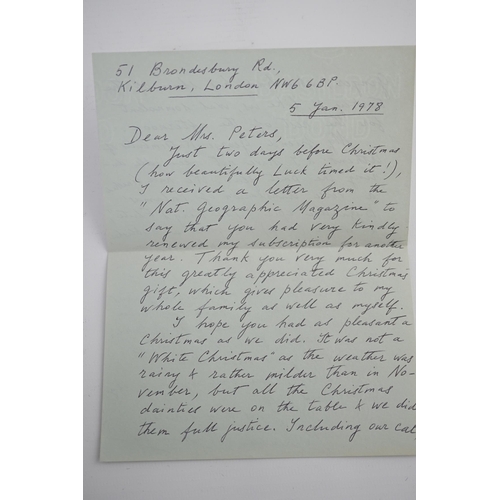 51 Brondesbury Rd.,
Kilburn, London NW6 6BP.
5 Jan. 1978
Dear Mrs. Peters,
Just two days before Christmas
(how beautifully Luck timed it!),
I received a letter from the
"Nat. Geographic Magazine" to
say that you had very kindly
renewed my subscription for another
year. Thank you very much for
this greatly appreciated Christmas
gift, which gives pleasure to my
whole family as well as myself.
I hope you had as pleasant a
Christmas as we did. It was not a
"White Christmas" as the weather was
rainy & rather milder than in No-
vember, but all the Christmas
dainties were on the table & we did
them full justice. Including our cat